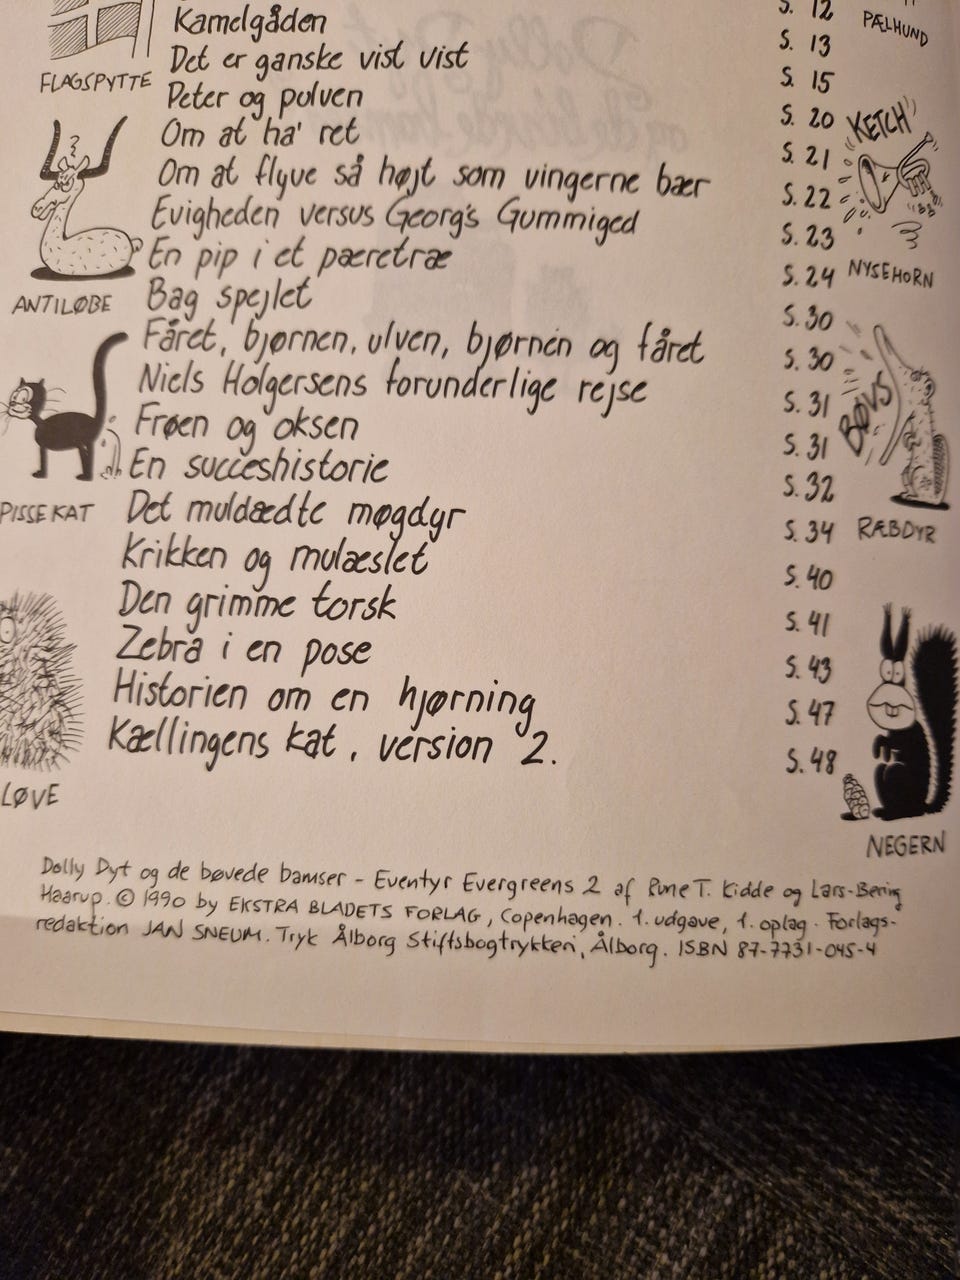 S. 12
PÆLHUND
Kamelgåden S. 13
Det er ganske vist vist S. 15
FLAGSPYTTE
Peter og pulven S. 20
KETCH
Om at ha' ret S. 21
Om at flyve så højt som vingerne bær S. 22
Evigheden versus Georg's Gummiged S. 23
En pip i et pæretræ S. 24
NYSEHORN
ANTILØBE
Bag spejlet S. 30
Fåret, bjørnen, ulven, bjørnen og fåret S. 30
Niels Holgersens forunderlige rejse S. 31
BØVS
Frøen og oksen S. 31
En succeshistorie S. 32
PISSEKAT
Det muldædte møgdyr S. 34
RÆBDYR
Krikken og mulæslet S. 40
Den grimme torsk S. 41
Zebra i en pose S. 43
Historien om en hjørning S. 47
Kællingens kat, version 2. S. 48
LØVE
NEGERN
Dolly Dyt og de bøvede bamser - Eventyr Evergreens 2 af Rune T. Kidde og Lars-Bering
Haarup. © 1990 by EKSTRA BLADETS FORLAG, Copenhagen. 1. udgave, 1. oplag. Forlags-
redaktion JAN SNEUM. Tryk Ålborg Stiftsbogtrykkeri, Ålborg. ISBN 87-7731-045-4